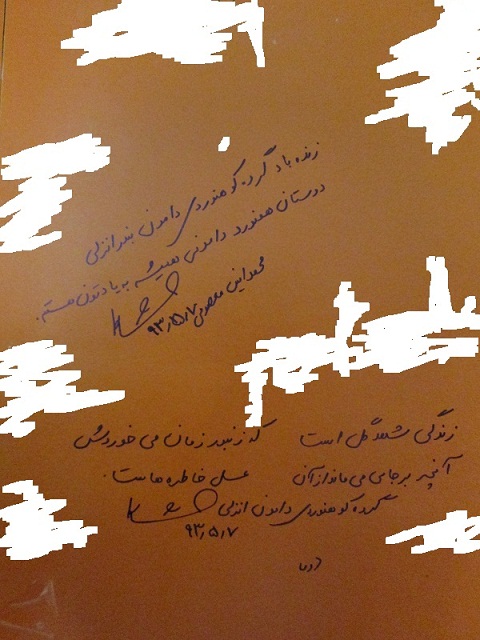 زنده باد گروه کوهنوردی دامون بندرانزلی
دوستان همنورد دامونی همیشه به یادتون هستم.
محمدامین معصومی
۹۳٫۵٫۷
زندگی شهد گل است که زنبور زمان می خوردش
آنچه برجای می ماند از آن عسل خاطره هاست.
گروه کوهنوردی دامون انزلی
۹۳٫۵٫۷